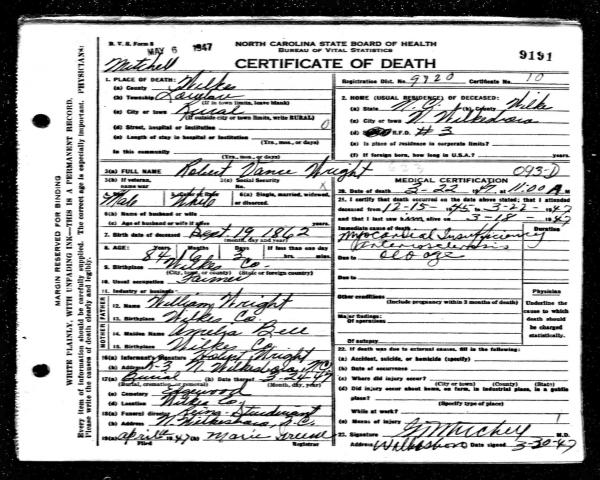 B. V. S. Form 8
MAY 6 1947
NORTH CAROLINA STATE BOARD OF HEALTH
BUREAU OF VITAL STATISTICS
CERTIFICATE OF DEATH
9191
Mitchell
Registration Dist. No. 9920 Certificate No. 10
1. PLACE OF DEATH:
(a) County Wilkes
(b) Township
(If in town limits, leave blank)
(c) City or town Rural
(If outside city or town limits, write RURAL)
(d) Street, hospital or institution 0
(e) Length of stay in hospital or institution
(Yrs., mos., or days)
In this community
(Yrs., mos. or days)
2. HOME (USUAL RESIDENCE) OF DECEASED:
(a) State N. C. (b) County Wilkes
(c) City or town N. Wilkesboro
(d) R.F.D. #3
(e) Is place of residence in corporate limits?
(f) If foreign born, how long in U.S.A.? years.
3(a) FULL NAME Robert Vance Wright
093-D
3(b) If veteran, name war
3(c) Social Security No. X
4. Male
5. Color or race White
6(a) Single, married, widowed, or divorced.
6(b) Name of husband or wife
6(c) Age of husband or wife
7. Birth date of deceased Sept 19 1862
(month, day and year)
8. AGE: Years Months Days If less than one day
84 6 3 hrs. min.
9. Birthplace Wilkes Co.
(City, town, or county) (State or foreign country)
10. Usual occupation Farmer
11. Industry or business
FATHER
12. Name William Wright
13. Birthplace Wilkes Co.
MOTHER
14. Maiden Name Amelia Bell
15. Birthplace Wilkes Co.
16(a) Informant's Signature Wright
(b) Address R-3 N. Wilkesboro, N.C.
17(a) Burial (b) Date thereof 3-24-47
(Burial, cremation, or removal) (Month, day, year)
(c) Cemetery
(d) Location Wilkes Co.
18(a) Funeral director Reins-Sturdivant
(b) Address N. Wilkesboro, N.C.
19(a) April 2 47 (b) Marie Greene
Filed Registrar
MEDICAL CERTIFICATION
20. Date of death 3-22-47, 11:00 A. M.
21. I certify that death occurred on the date above stated; that I attended
deceased from 12-15- 46 to 3-22- 1947
and that I last saw him, alive on 3-18- 1947
Immediate cause of death Duration
Myocardial Insufficiency
Due to Arteriosclerosis
Due to Old age
Due to
Other conditions
(Include pregnancy within 3 months of death)
Major findings:
Of operations
Of autopsy
Physician
Underline the cause to which death should be charged statistically.
22. If death was due to external causes, fill in the following:
(a) Accident, suicide, or homicide (specify)
(b) Date of occurrence
(c) Where did injury occur?
(City or town) (County) (State)
(d) Did injury occur about home, on farm, in industrial place, in a public
place?
(Specify type of place)
While at work?
(e) Means of injury
23. Signature M.D.
Address Wilkesboro Date signed 3-30-47
MARGIN RESERVED FOR BINDING
WRITE PLAINLY, WITH UNFADING INK—THIS IS A PERMANENT RECORD.
Every item of information should be carefully supplied. The correct age is especially important. PHYSICIANS:
Please write the causes of death clearly and legibly.